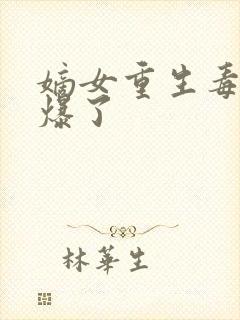 嫡女重生毒
爆了
林華生